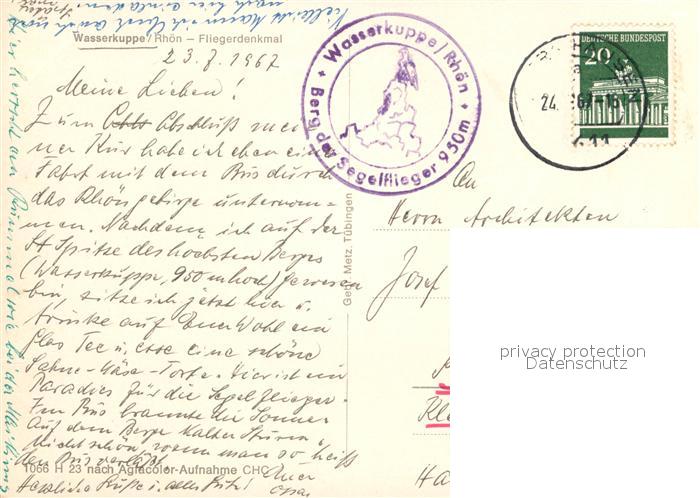 Wasserkuppe/Rhön – Fliegerdenkmal
23.8.1967
Meine Lieben!
Zum Abschluß mei-
ner Kur habe ich eben eine
Fahrt mit dem Bus durch
das Rhöngebirge unternom-
men. Nachdem ich auf der
Spitze des höchsten Berges
(Wasserkuppe, 950 m hoch) gewesen
bin, sitze ich jetzt hier u.
trinke auf Euer Wohl ein
Glas Tee u. esse eine schöne
Sahne-Käse-Torte. Hier ist ein
Paradies für die Segelflieger.
Im Bus brannte die Sonne.
Auf dem Berge kalter Sturm.
Nicht schön, wenn man so heiß
den Bus verläßt.
Herzliche Grüße u. alles Gute!
Euer
Opa
1066 H 23 nach Agfacolor-Aufnahme CHO
Gebr. Metz, Tübingen
Wasserkuppe/Rhön
Berg der Segelflieger 950m
DEUTSCHE BUNDESPOST
20
24.
An
Herrn Architekten
Josef
privacy protection
Datenschutz